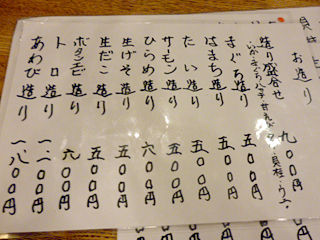 お造り
造り盛合せ 九〇〇円
まぐろ造り 五〇〇円
はまち造り 五〇〇円
たい造り 五〇〇円
サーモン造り 五〇〇円
ひらめ造り 六〇〇円
生げそ造り 五〇〇円
生だこ造り 五〇〇円
ボタンエビ造り 九〇〇円
トロ造り 一二〇〇円
あわび造り 一八〇〇円